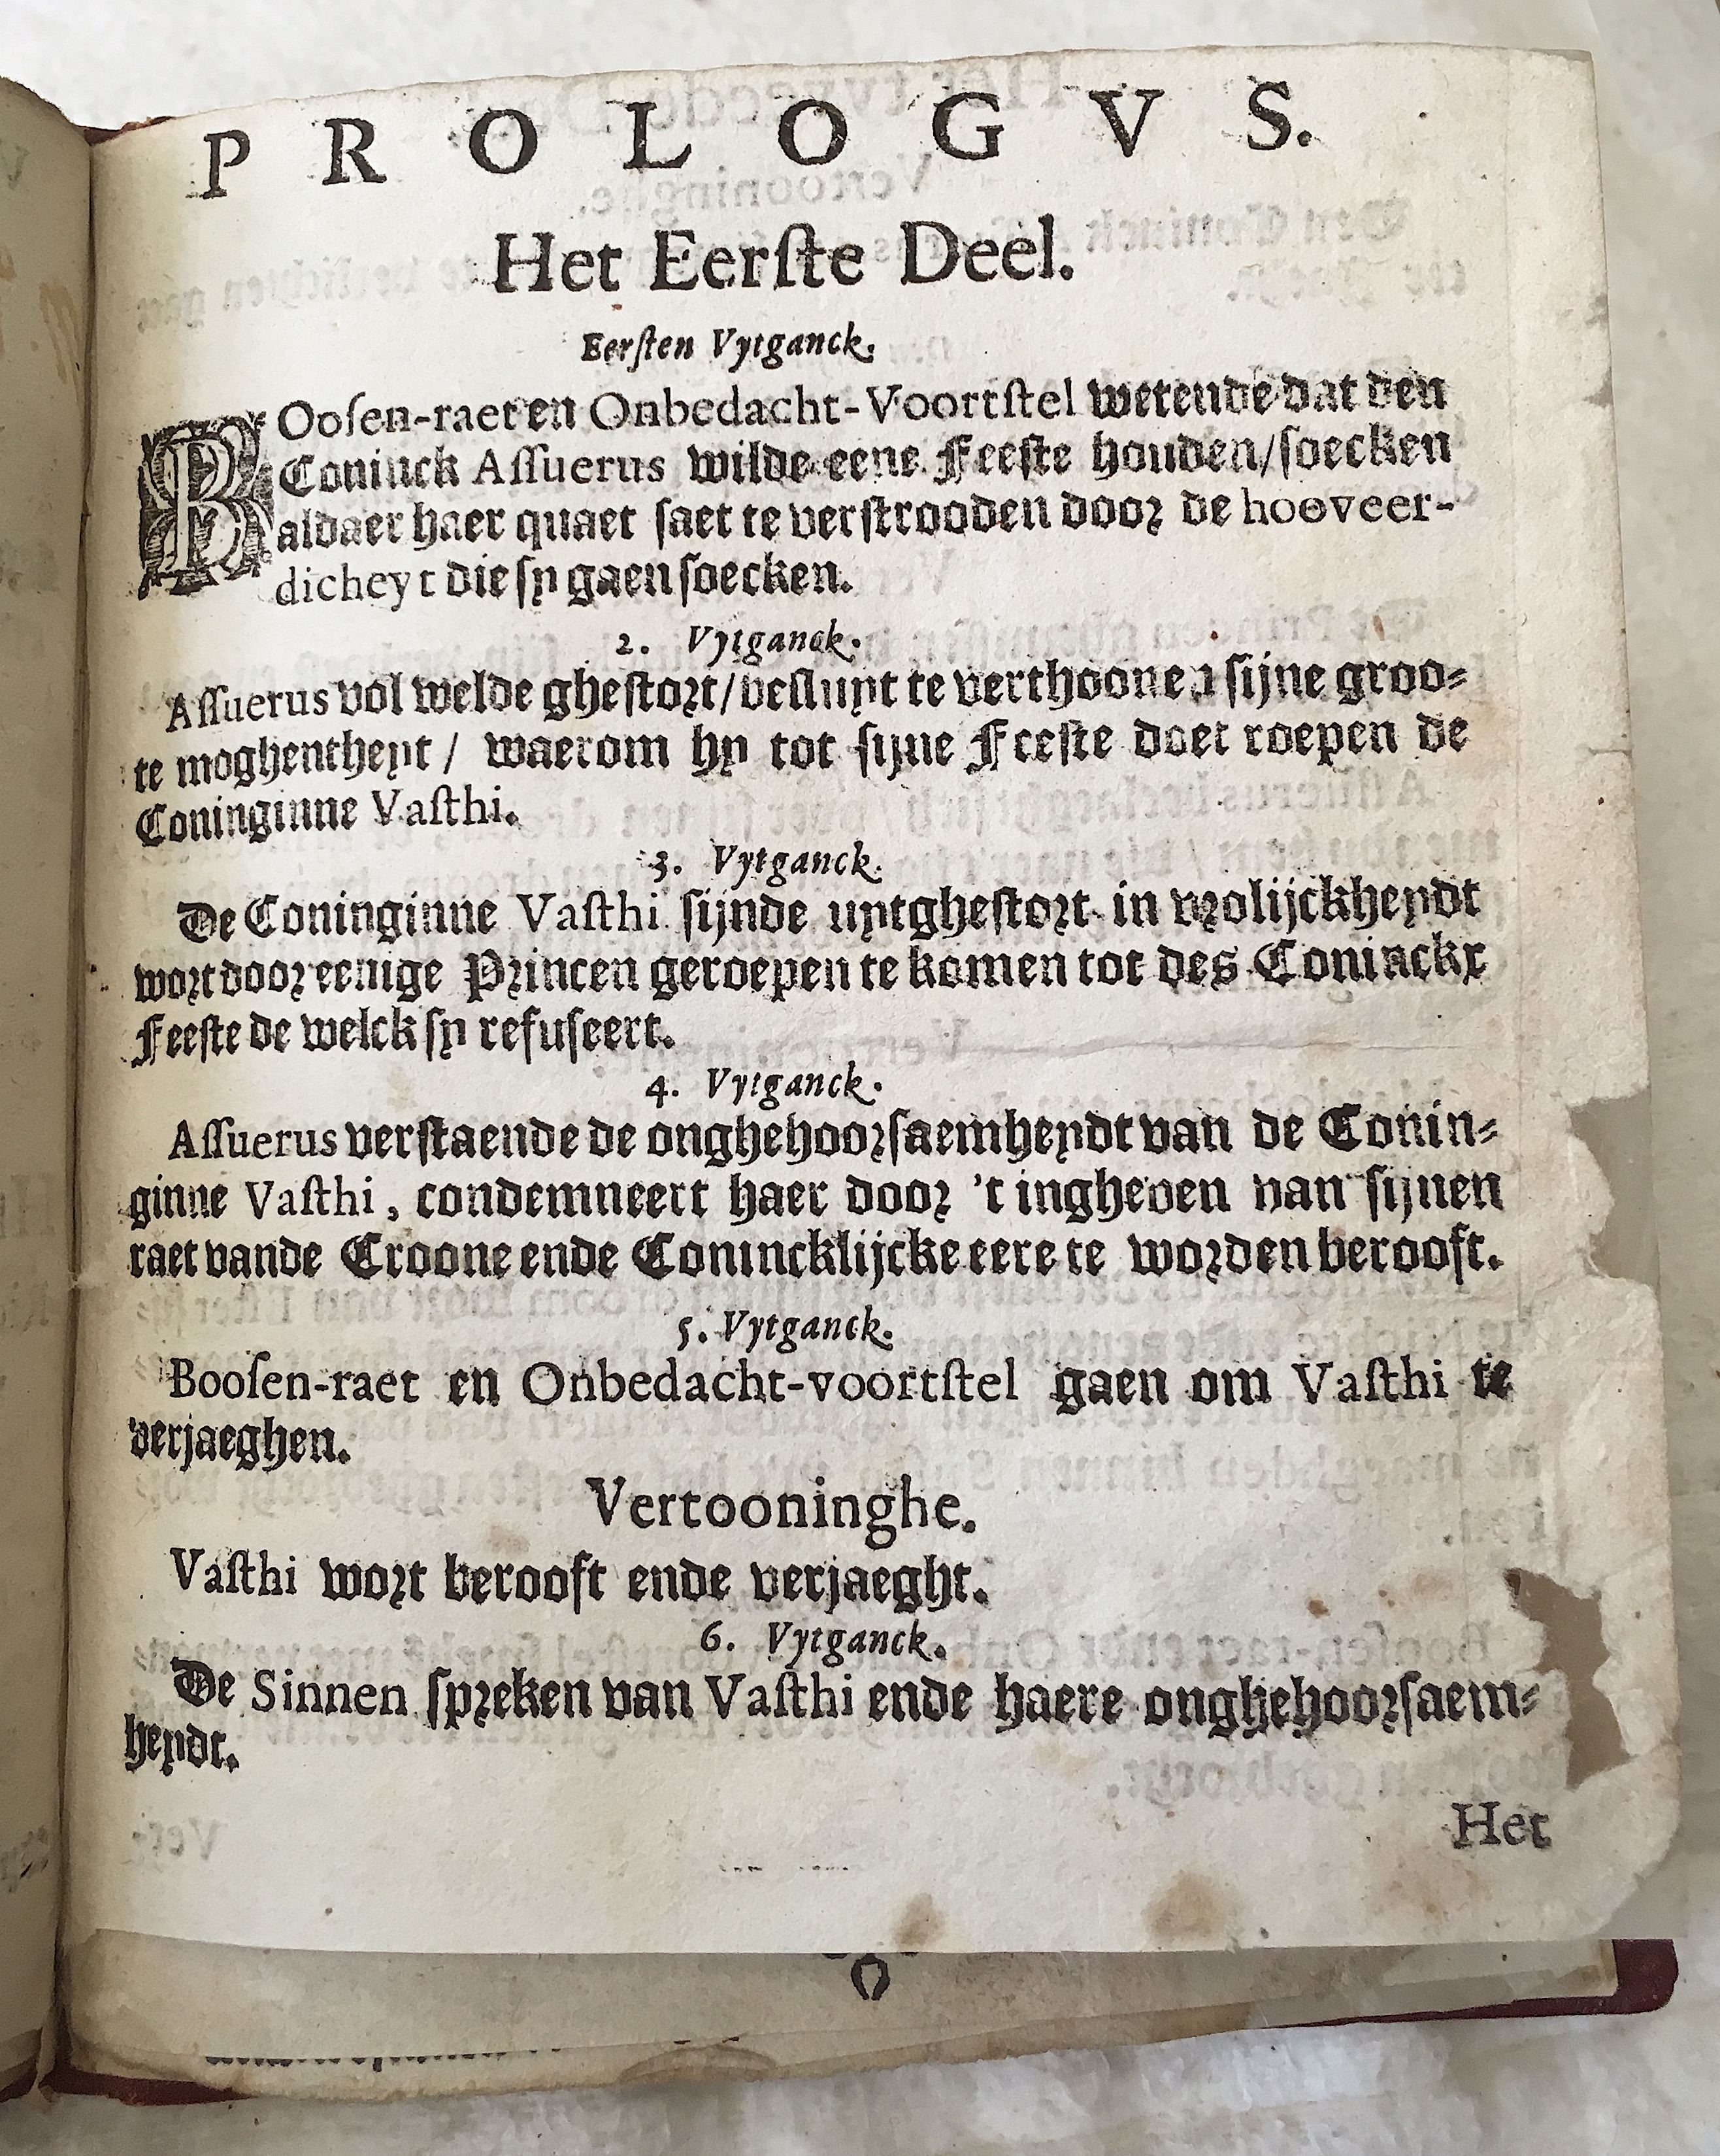 PROLOGVS.
Het Eerſte Deel.
Eerſten Vytganck.
BOoſen-raet en Onbedacht-Voortſtel wetende dat den
Coninck Aſſuerus wilde eene Feeſte houden/ſoecken
aldaer haer quaet ſaet te verſtrooden door de hooveer-
dicheyt die ſy gaen ſoecken.
2. Vytganck.
Aſſuerus vol welde gheſtort/beſluyt te verthoonen ſijne groo-
te moghentheyt / waerom hy tot ſijne Feeſte doet roepen de
Coninginne Vaſthi.
3. Vytganck.
De Coninginne Vaſthi ſijnde uytgheſtort in vrolijckheydt
wort door eenige Princen geroepen te komen tot des Coninckx
Feeſte de welck ſy refuſeert.
4. Vytganck.
Aſſuerus verſtaende de onghehoorſaemheydt van de Conin-
ginne Vaſthi, condemneert haer door 't ingheven van ſijnen
raet vande Croone ende Conincklijcke eere te worden berooft.
5. Vytganck.
Booſen-raet en Onbedacht-voortſtel gaen om Vaſthi te
verjaeghen.
Vertooninghe.
Vaſthi wort berooft ende verjaeght.
6. Vytganck.
De Sinnen ſpreken van Vaſthi ende haere onghehoorſaem-
heydt.
Het